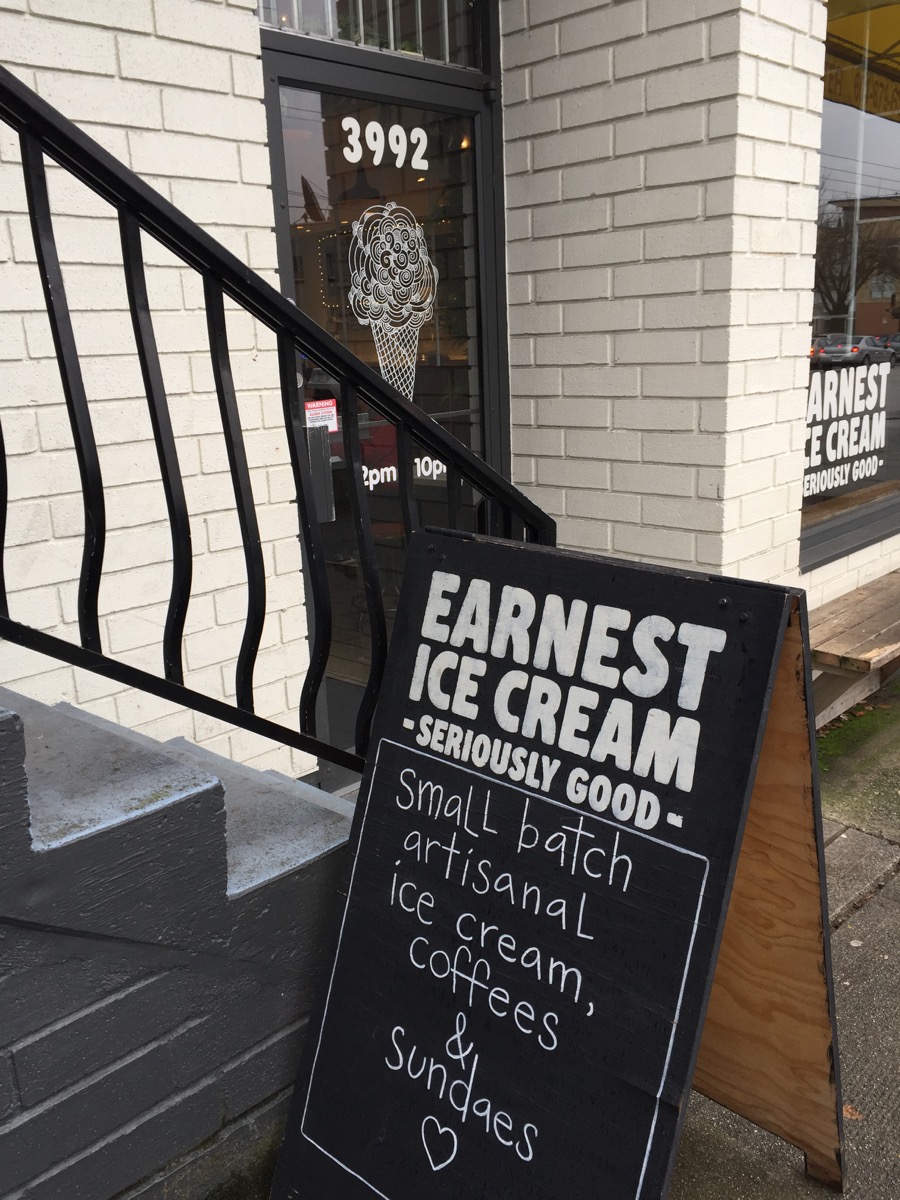 3992
WARNING
2pm 10p
EARNEST
ICE CREAM
SERIOUSLY GOOD-
EARNEST
ICE CREAM
-SERIOUSLY GOOD-
Small batch
artisanal
ice cream,
coffees
&
Sundaes